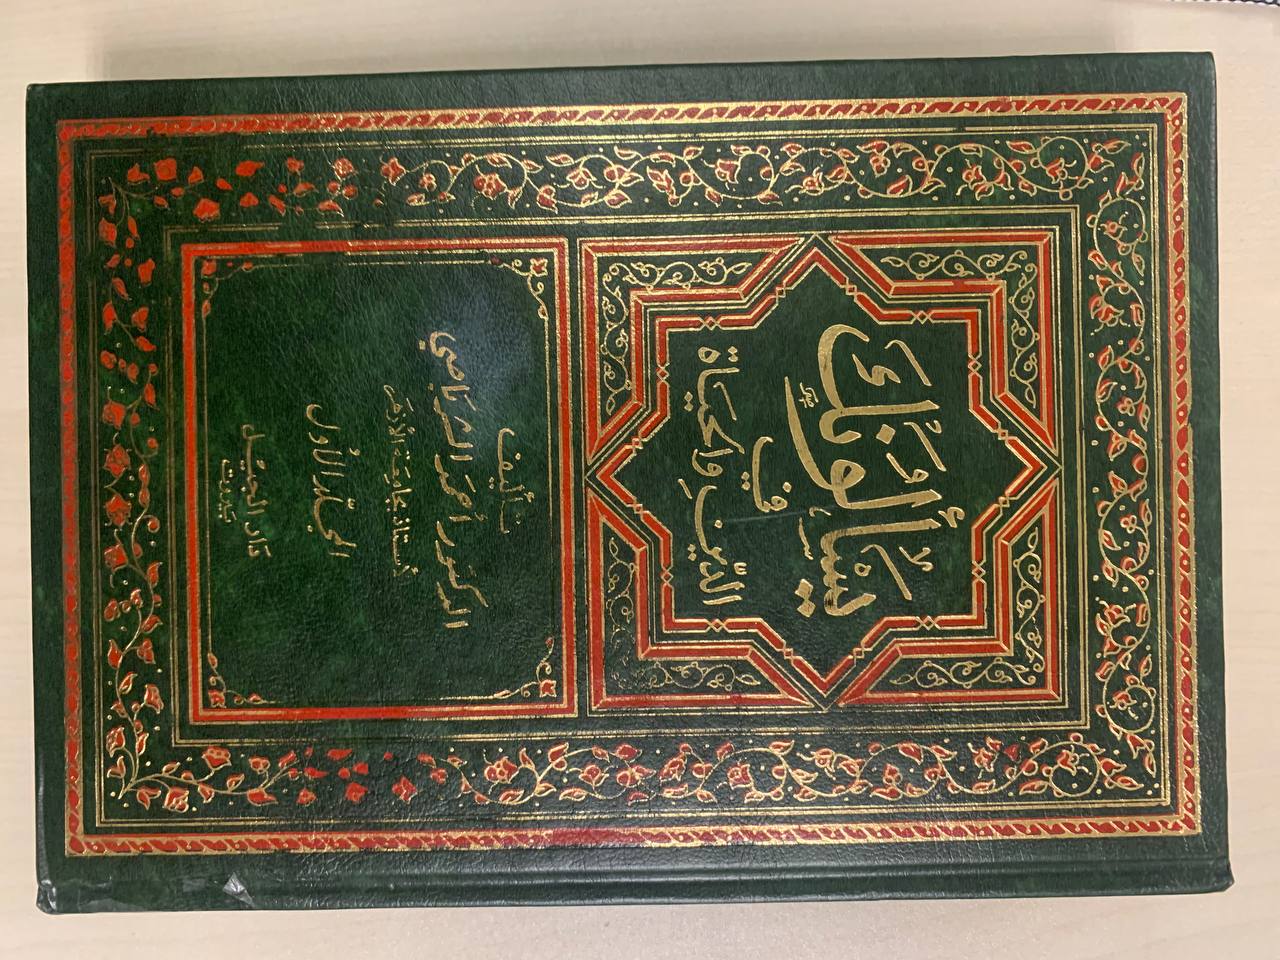 يسألونك
في
الدين والحياة
تأليف
الدكتور أحمد الشرباصي
أستاذ بجامعة الأزهر
المجلد الأول
دار الجيل
بيروت